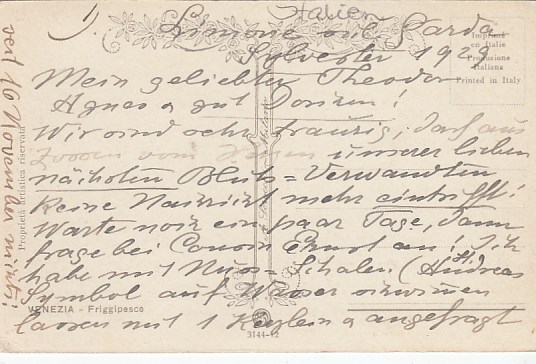 Italien
1)
Limone sul Garda
Sylvester 1929
Imprimé
en Italie
Produzione
Italiana
Printed in Italy
Mein geliebter Theodor
Agnes & gut
Wir sind sehr traurig, daß aus
vom Herzen unserer lieben
nächsten Bluts=Verwandten
keine Nachricht mehr eintrifft!
Warte noch ein paar Tage, dann
frage bei Cousin Ernst an! Ich
habe mit Nuss=Schalen (Hl. Andreas
Symbol auf Wasser schwimen
lassen mit 1 Kerzlein & angefragt
seit 16 November nichts!
Proprietà artistica riservata
VENEZIA - Friggipesce
3144-12